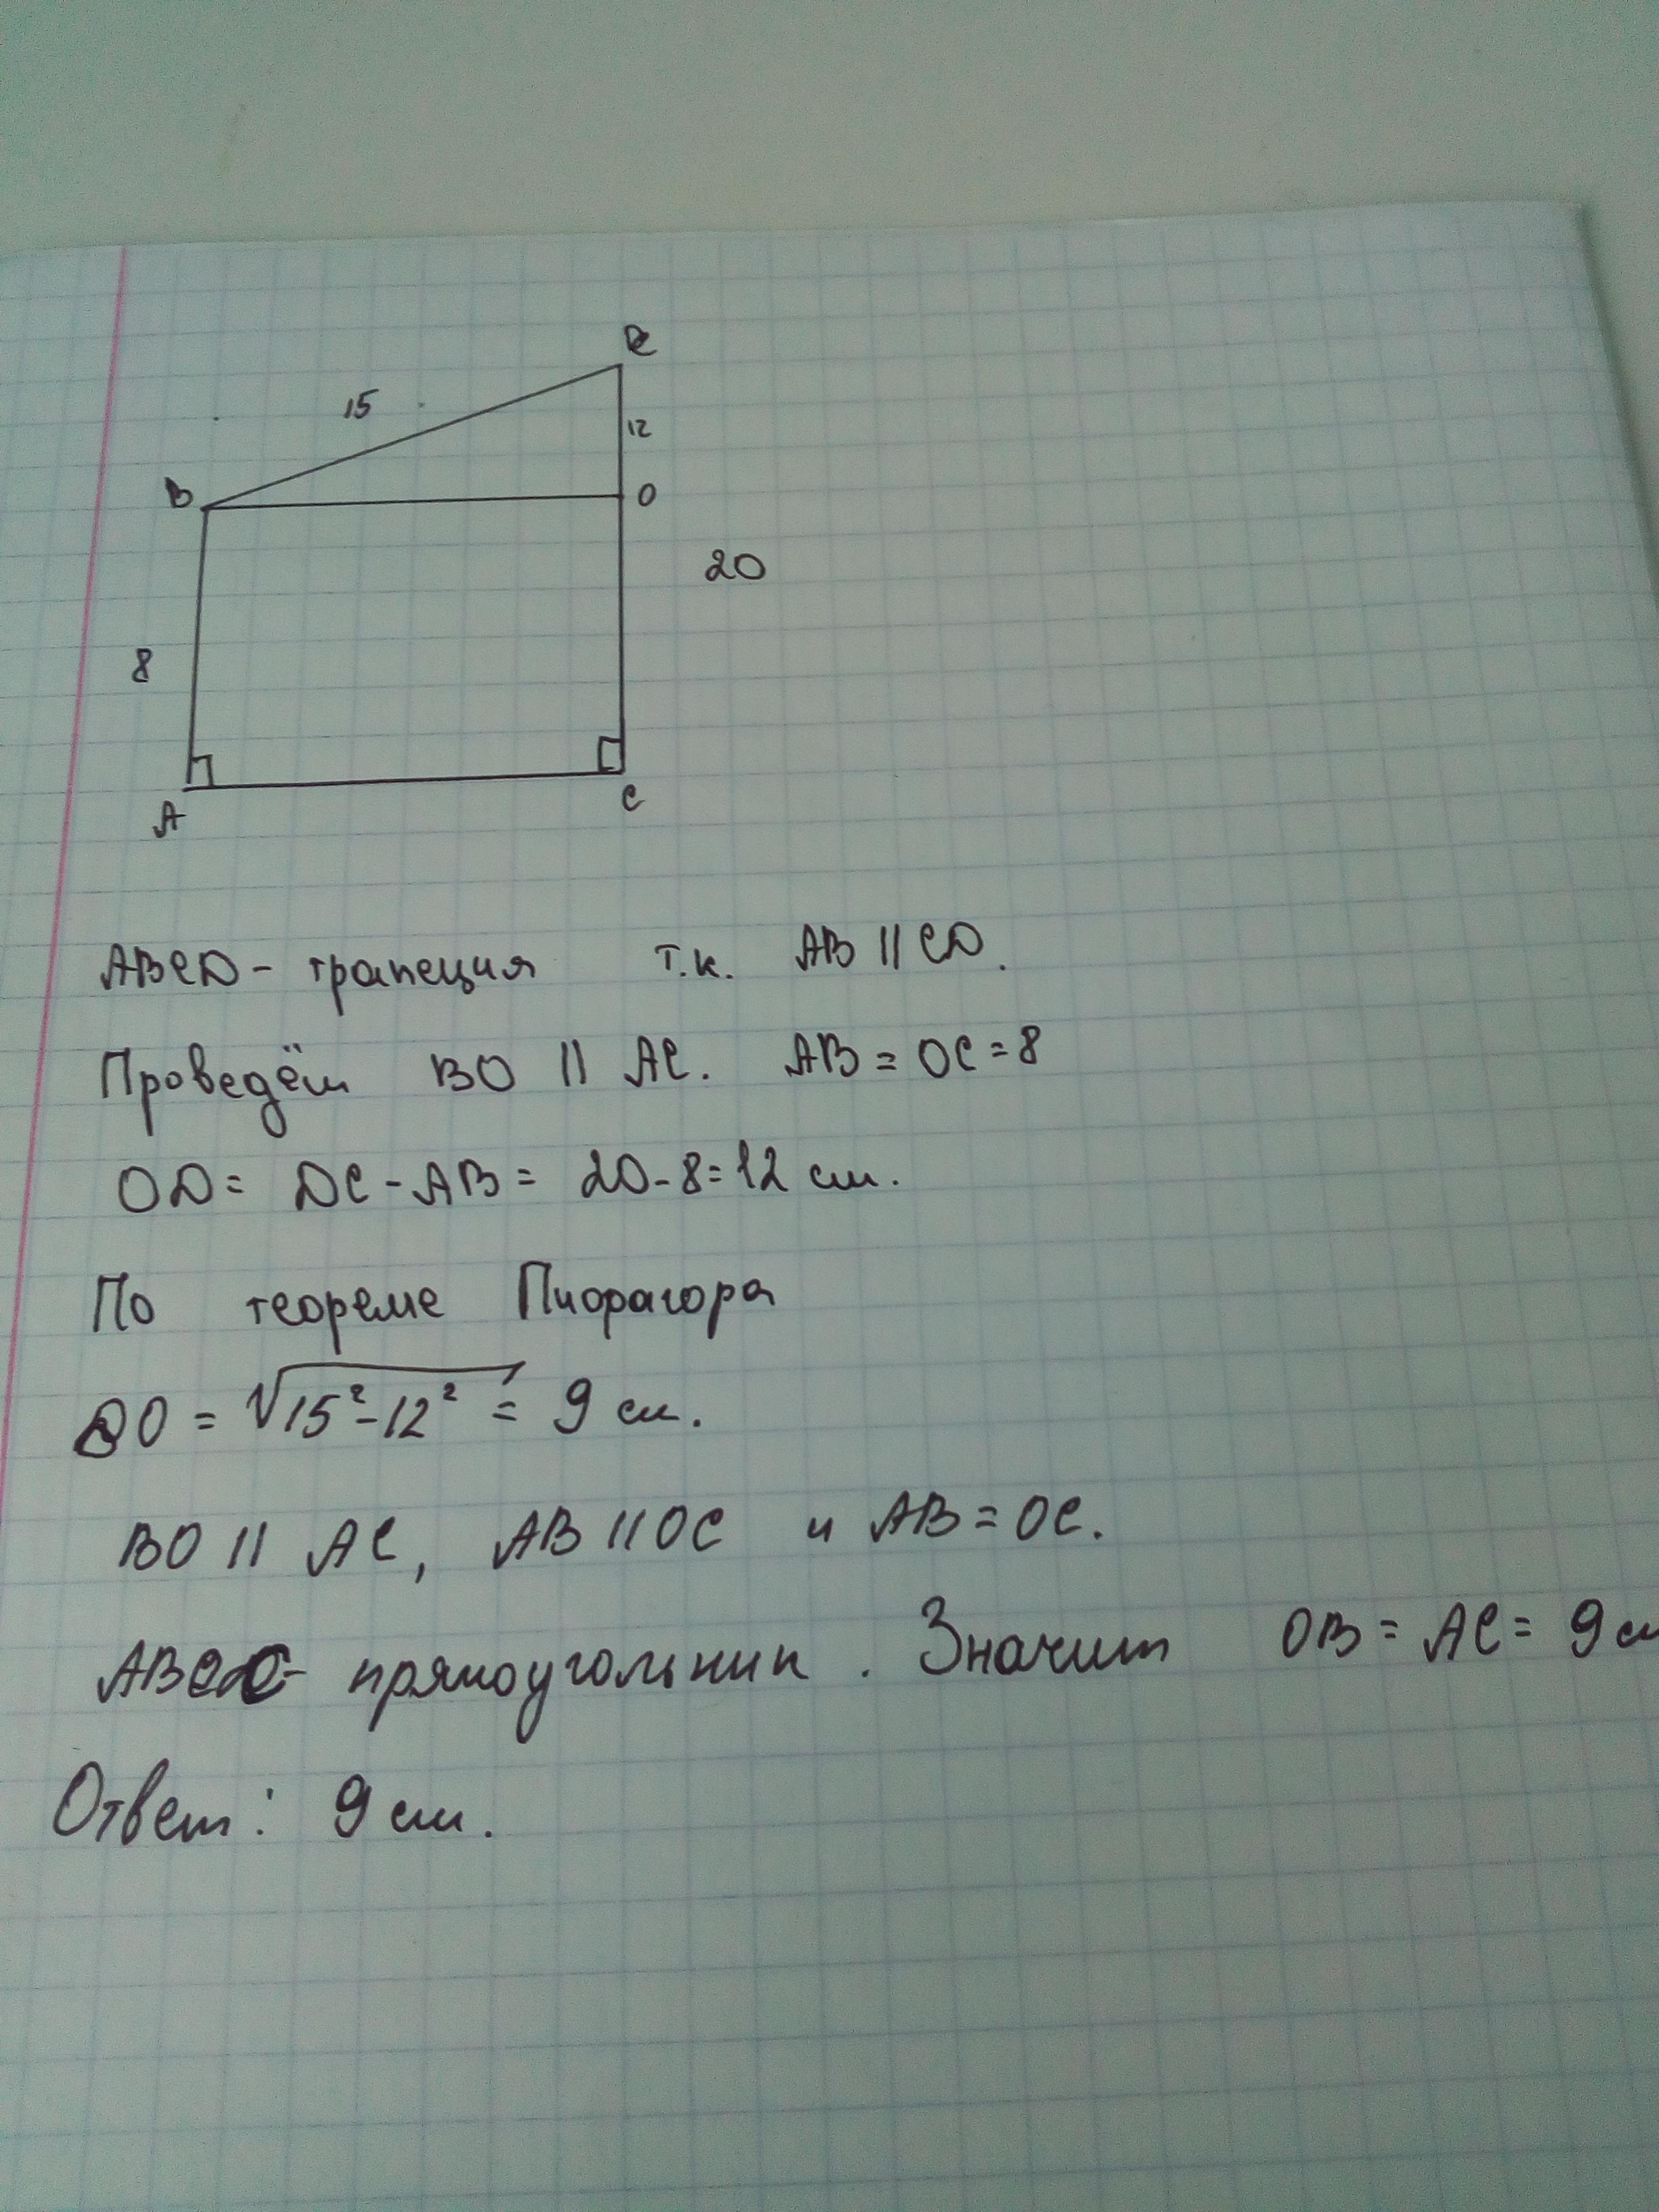 D
15
12
B
O
20
8
A
C
ABCD - трапеция т.к. AB || CD.
Проведём BO || AC. AB = OC = 8
OD = DC - AB = 20 - 8 = 12 см.
По теореме Пифагора
BO = √15² - 12² = 9 см.
BO || AC, AB || OC и AB = OC.
прямоугольник. Значит OB = AC = 9 см
Ответ: 9 см.